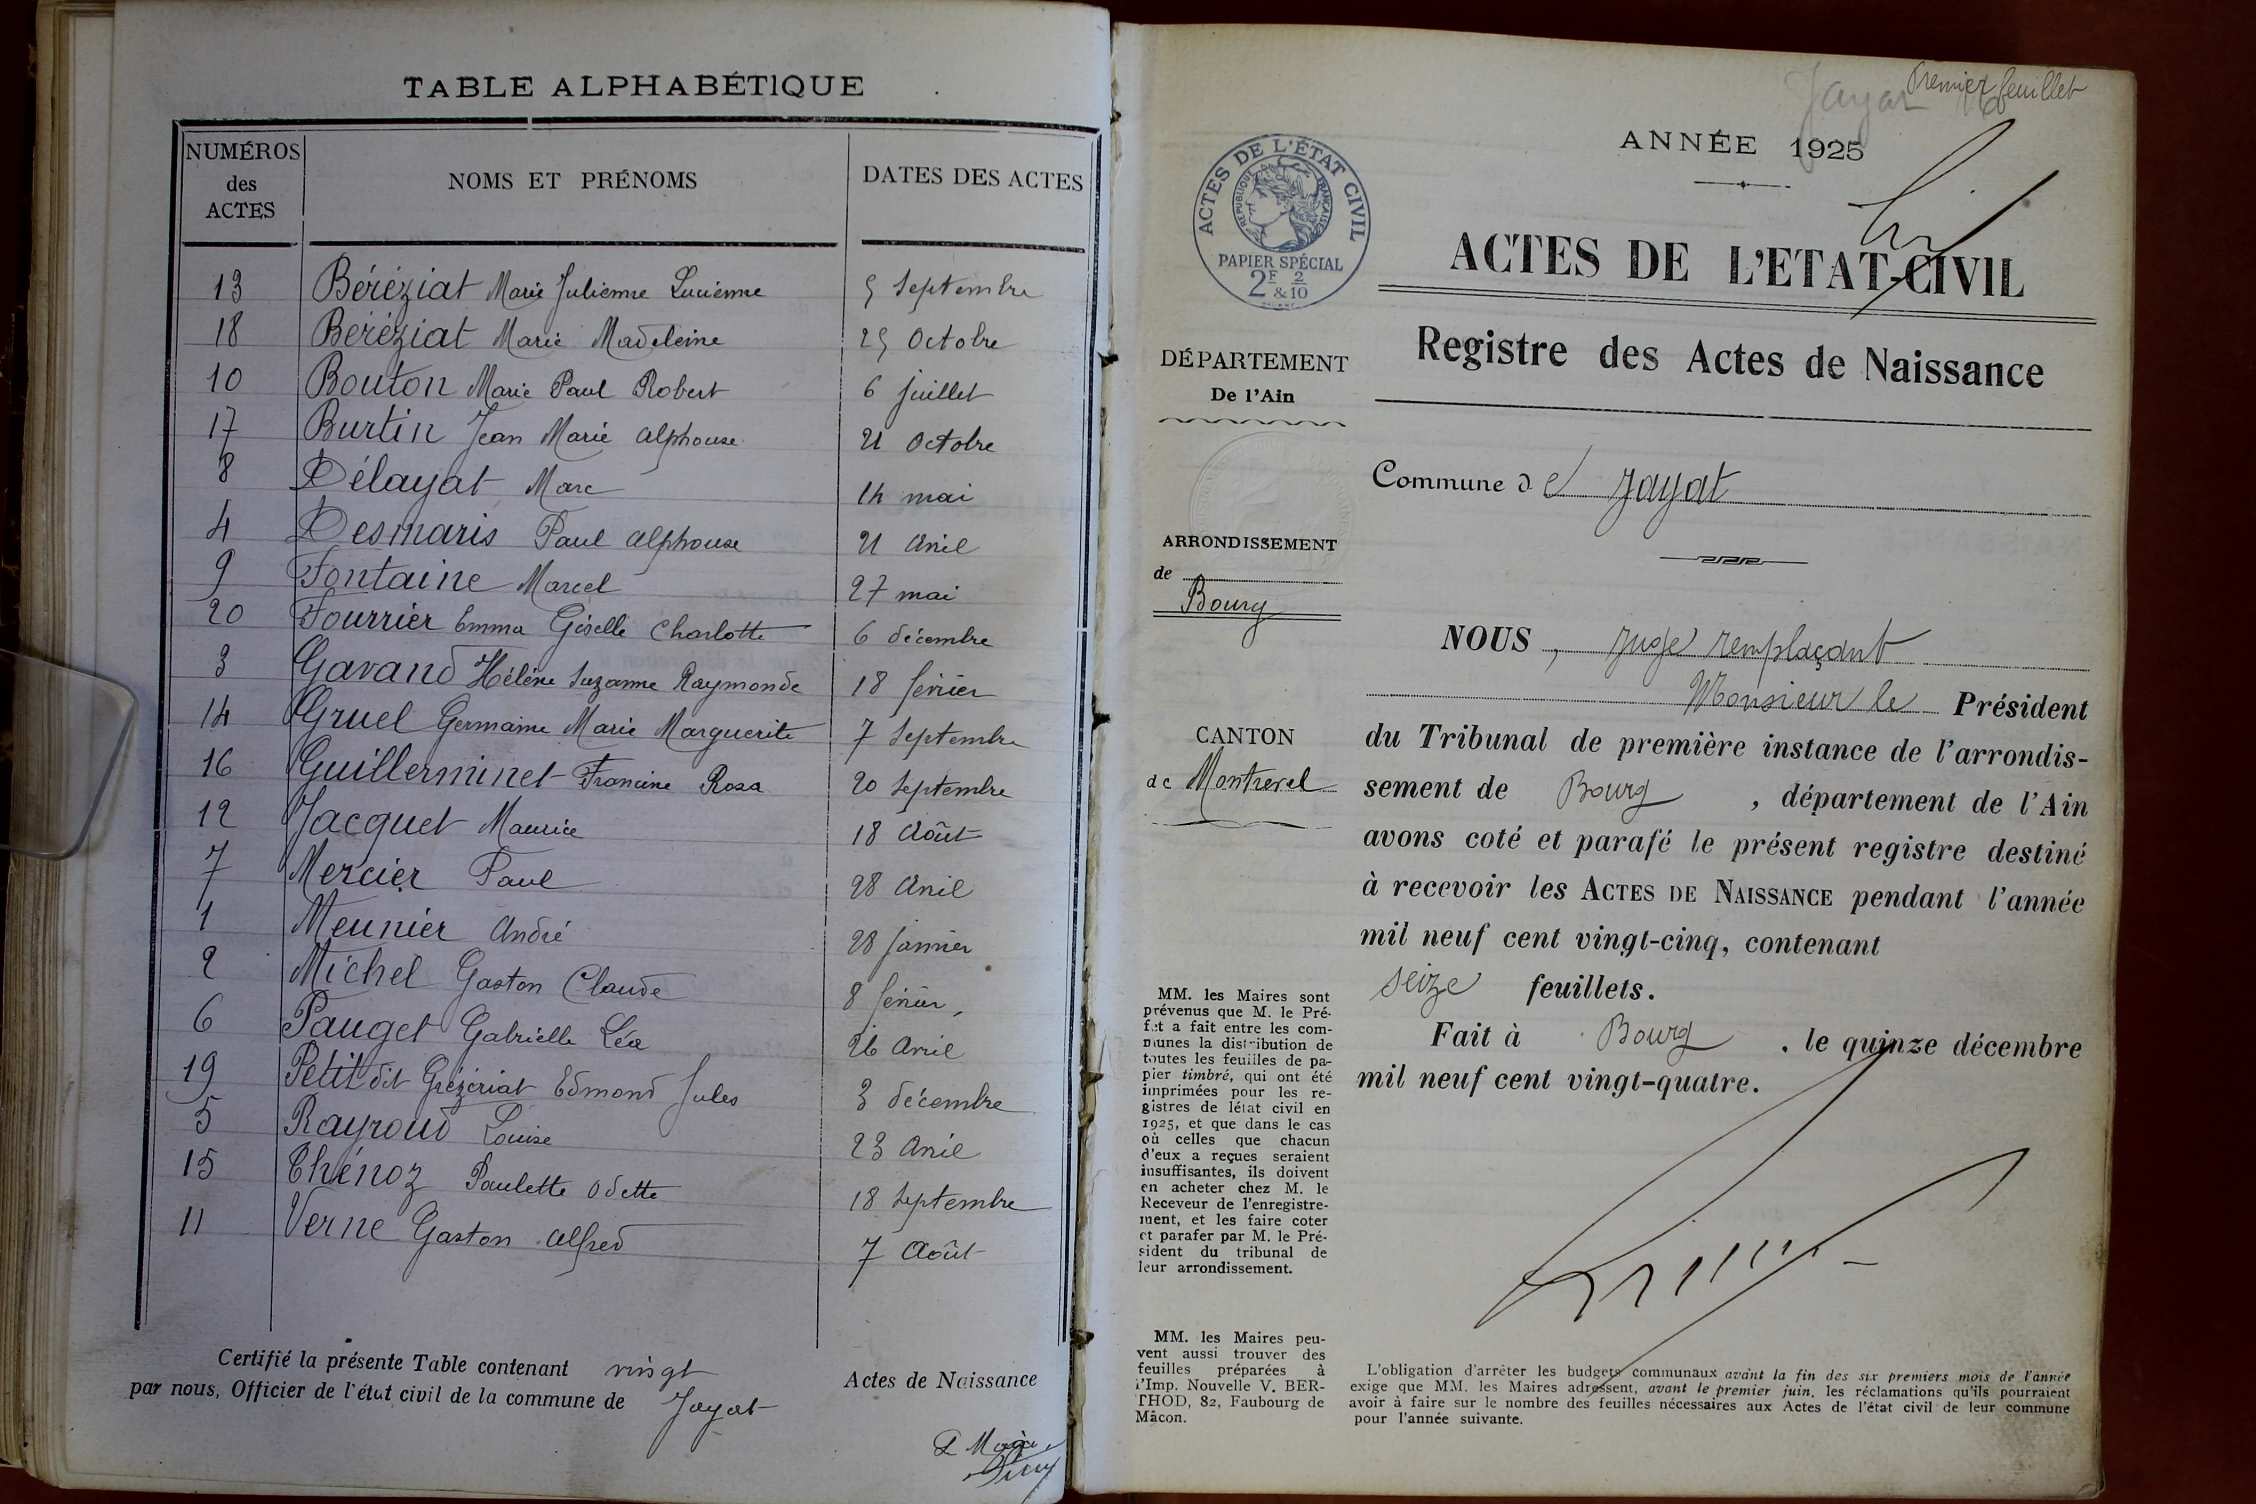 TABLE ALPHABÉTIQUE
NUMÉROS des ACTES NOMS ET PRÉNOMS DATES DES ACTES
13 Béréziat Marie Julienne Lucienne 5 Septembre
18 Béréziat Marie Madeleine 25 Octobre
10 Bouton Marie Paul Robert 6 juillet
17 Burtin Jean Marie Alphonse 21 Octobre
8 Délayat Marc 14 mai
4 Desmaris Paul Alphonse 21 Avril
9 Fontaine Marcel 27 mai
20 Fourrier Emma Giselle Charlotte 6 décembre
3 Gavand Hélène Suzanne Raymonde 18 février
14 Gruel Germaine Marie Marguerite 7 Septembre
16 Guillerminet Francine Rosa 20 Septembre
12 Jacquet Maurice 18 Août
7 Mercier Paul 28 Avril
1 Meunier André 28 janvier
2 Michel Gaston Claude 8 février
6 Pauget Gabrielle Léa 26 Avril
19 Petit dit Grézériat Edmond Jules 3 décembre
5 Rayroud Louise 23 Avril
15 Thénoz Paulette Odette 18 Septembre
11 Verne Gaston Alfred 7 Août
Certifié la présente Table contenant vingt Actes de Naissance
par nous, Officier de l'état civil de la commune de Jayat
Le Maire
Jayat
Premier feuillet
ANNÉE 1925
ACTES DE L'ÉTAT CIVIL
RÉPUBLIQUE FRANÇAISE
PAPIER SPÉCIAL
2F & 2/10
ACTES DE L'ETAT-CIVIL
Registre des Actes de Naissance
DÉPARTEMENT
De l'Ain
Commune de Jayat
ARRONDISSEMENT
de Bourg
CANTON
de Montrevel
NOUS, juge remplaçant
Monsieur le Président
du Tribunal de première instance de l'arrondis-
sement de Bourg, département de l'Ain
avons coté et parafé le présent registre destiné
à recevoir les ACTES DE NAISSANCE pendant l'année
mil neuf cent vingt-cinq, contenant
seize feuillets.
Fait à Bourg, le quinze décembre
mil neuf cent vingt-quatre.
MM. les Maires sont
prévenus que M. le Pré-
fet a fait entre les com-
munes la distribution de
toutes les feuilles de pa-
pier timbré, qui ont été
imprimées pour les re-
gistres de létat civil en
1925, et que dans le cas
où celles que chacun
d'eux a reçues seraient
insuffisantes, ils doivent
en acheter chez M. le
Receveur de l'enregistre-
ment, et les faire coter
et parafer par M. le Pré-
sident du tribunal de
leur arrondissement.
MM. les Maires peu-
vent aussi trouver des
feuilles préparées à
l'Imp. Nouvelle V. BER-
THOD, 82, Faubourg de
Mâcon.
L'obligation d'arrêter les budgets communaux avant la fin des six premiers mois de l'année
exige que MM. les Maires adressent, avant le premier juin, les réclamations qu'ils pourraient
avoir à faire sur le nombre des feuilles nécessaires aux Actes de l'état civil de leur commune
pour l'année suivante.